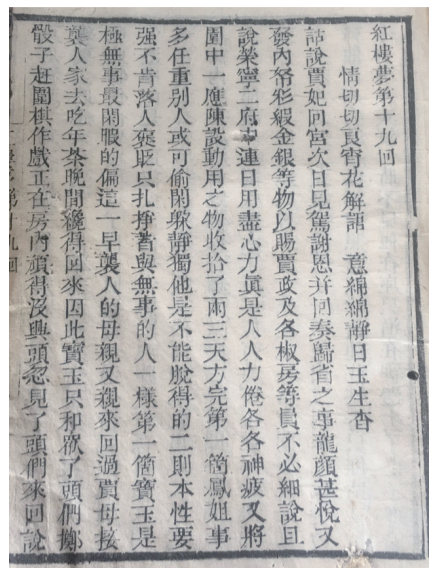 紅樓夢第十九回
情切切良宵花解語　意綿綿靜日玉生香
話說賈妃回宮次日見駕謝恩并回奏歸省之事龍顏甚悅又
發內帑彩緞金銀等物以賜賈政及各椒房等員不必細說且
說榮寧二府中連日用盡心力眞是人人力倦各各神疲又將
園中一應陳設動用之物收拾了兩三天方完第一箇鳳姐事
多任重別人或可偷閑躱靜獨他是不能脫得的二則本性要
强不肯落人襃貶只扎挣着與無事的人一樣第一箇寶玉是
極無事最閑暇的偏這一早襲人的母親又親來回過賈母接
襲人家去吃年茶晚間纔得回來因此寶玉只和衆丫頭們擲
骰子赶圍棋作戲正在房內頑得沒興頭忽見丫頭們來回說
第十九回